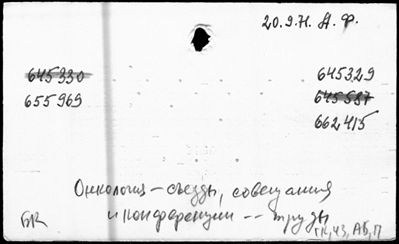 20.9.71. А. Ф.
645330 645329
655969 645587
662415
Онкология – съезды, совещания
и конференции -- труды
БК ГК, ЧЗ, АБ, П